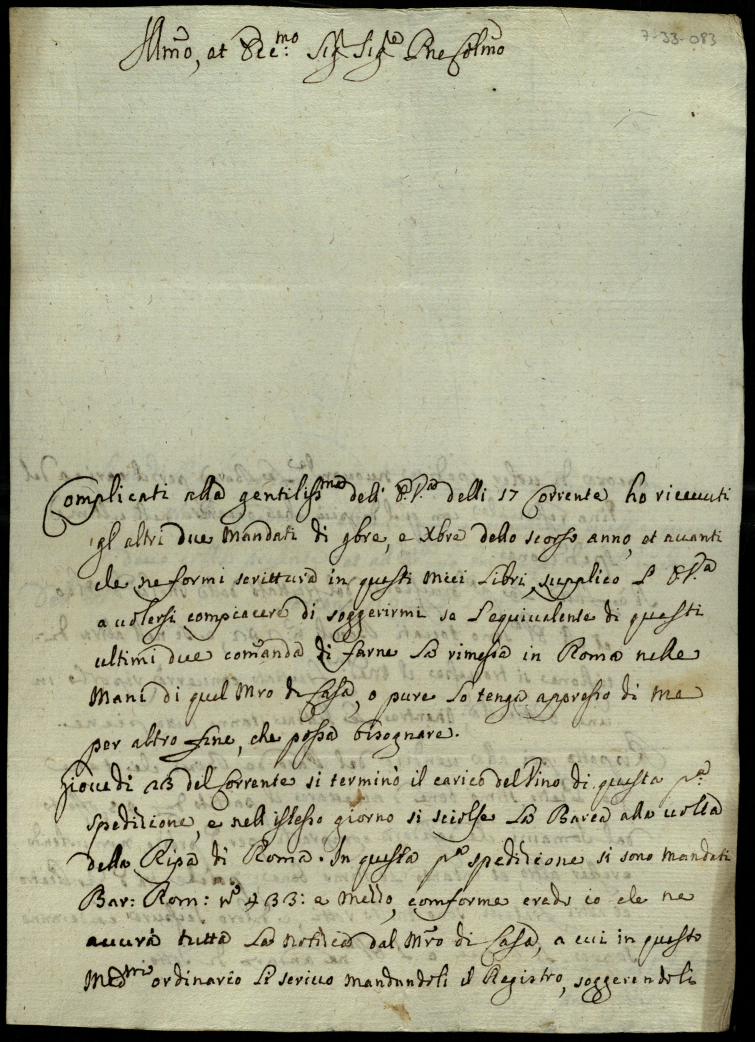 7-33-083
Illmo, et Ecc:mo Sig.r Sig.e Prne Colmo
Complicati alla gentiliss.ma dell' E.V.ra delli 17 Corrente ho riceuuti
gl'altri due Mandati di 9bre, e Xbre dello scorso anno, et auanti
che ne formi scrittura in questi miei Libri, supplico L' E.V.ra
a uolersi compiacere di soggerirmi se l'equiualente di questi
ultimi due comanda di farne La rimessa in Roma nelle
Mani di quel Mro di Casa, o pure Lo tenga appresso di me
per altro fine, che possa bisognare.
Giouedi 23 del Corrente si terminò il carico del Vino di questa p.ma
spedizione, e nell'istesso giorno si sciolse La Barca alla uolta
della Ripa di Roma. In questa p.ma spedizione si sono mandati
Bar: Rom: n.o 433: e mezzo, comforme credo io che ne
aurà tutta La notizia dal Mro di Casa, a cui in questo
Med.mo ordinario Li scriuo mandandoli il Registro, soggerendoli